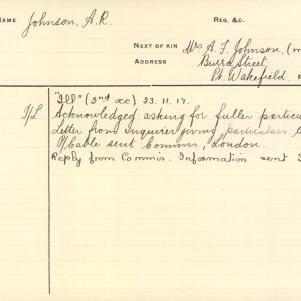 NAME Johnson, A.R. REG. &C.
NEXT OF KIN Mrs A. F. Johnson, (m
ADDRESS Burra Street,
Pt. Wakefield.
"Ill" (2nd occ) 23.11.17.
Acknowledged asking for fuller particu
Letter from Inquirer giving particulars
O/Cable sent Commis, London.
Reply from Commis. Information sent